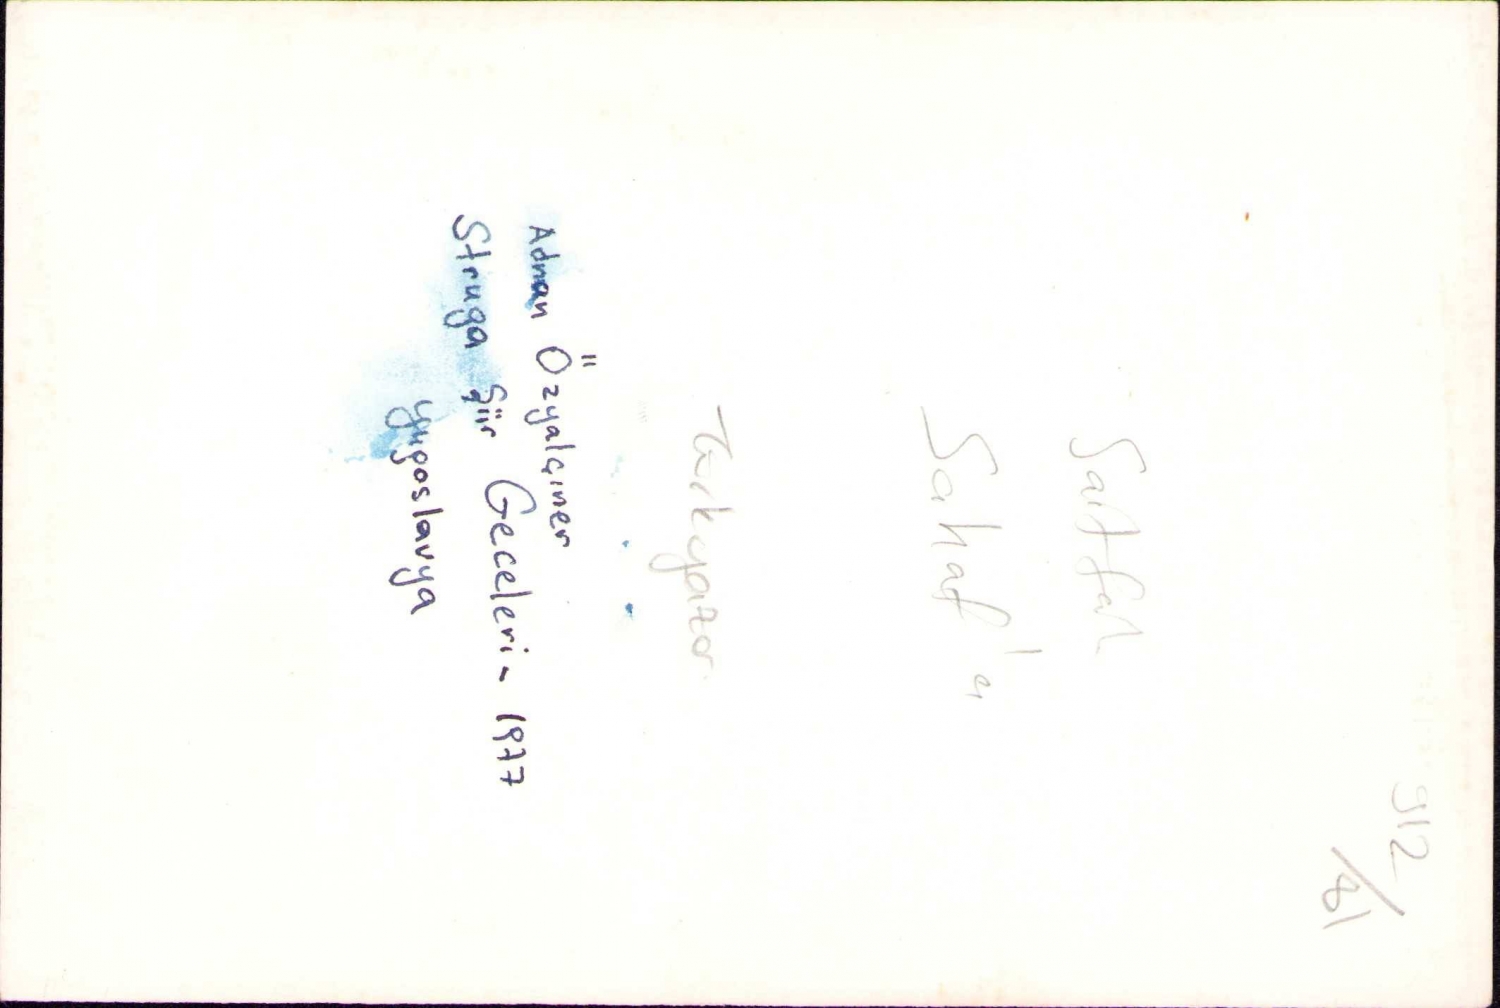 912
/81
Sahaf'a
Türkyazar
Adnan Özyalçıner
Struga Şiir Geceleri - 1977
Yugoslavya